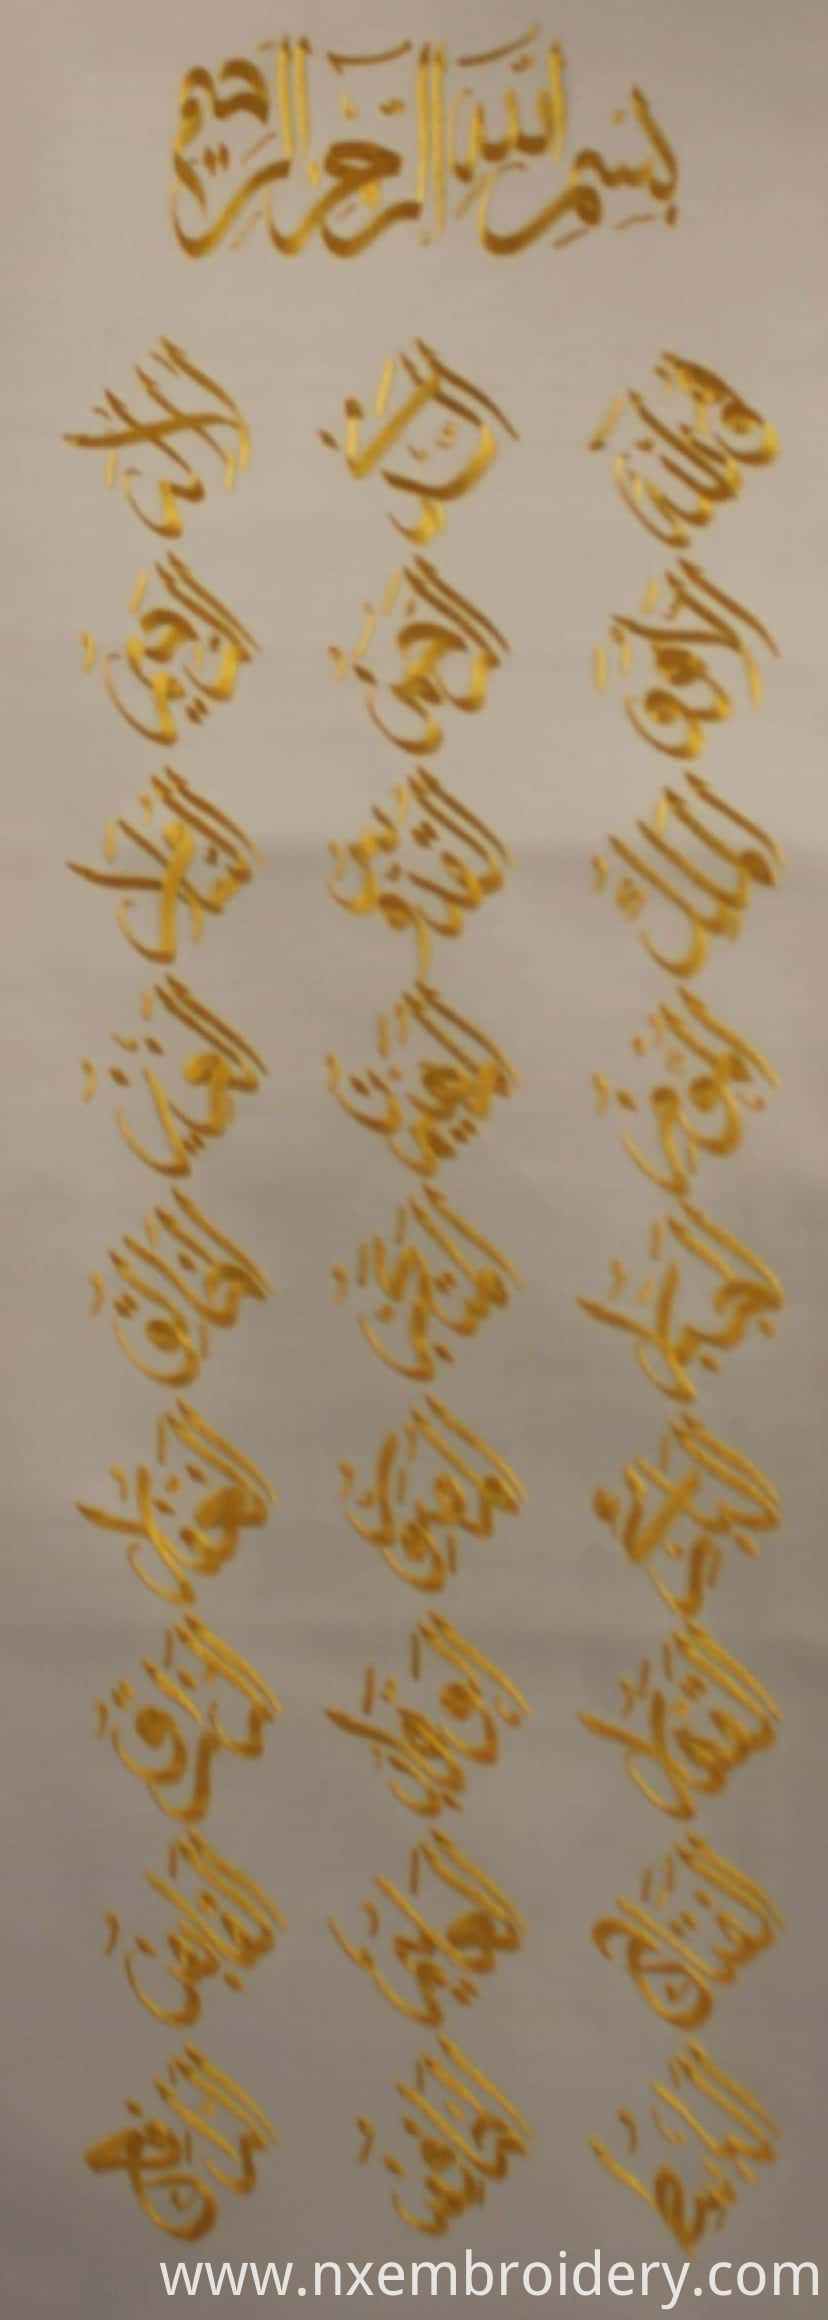 بسم الله الرحمن الرحيم
هو الله الذي لا إله
إلا هو الرحمن الرحيم
الملك القدوس السلام
المؤمن المهيمن العزيز
الجبار المتكبر الخالق
البارئ المصور الغفار
القهار الوهاب الرزاق
الفتاح العليم القابض
الباسط الخافض الرافع
www.nxembroidery.com